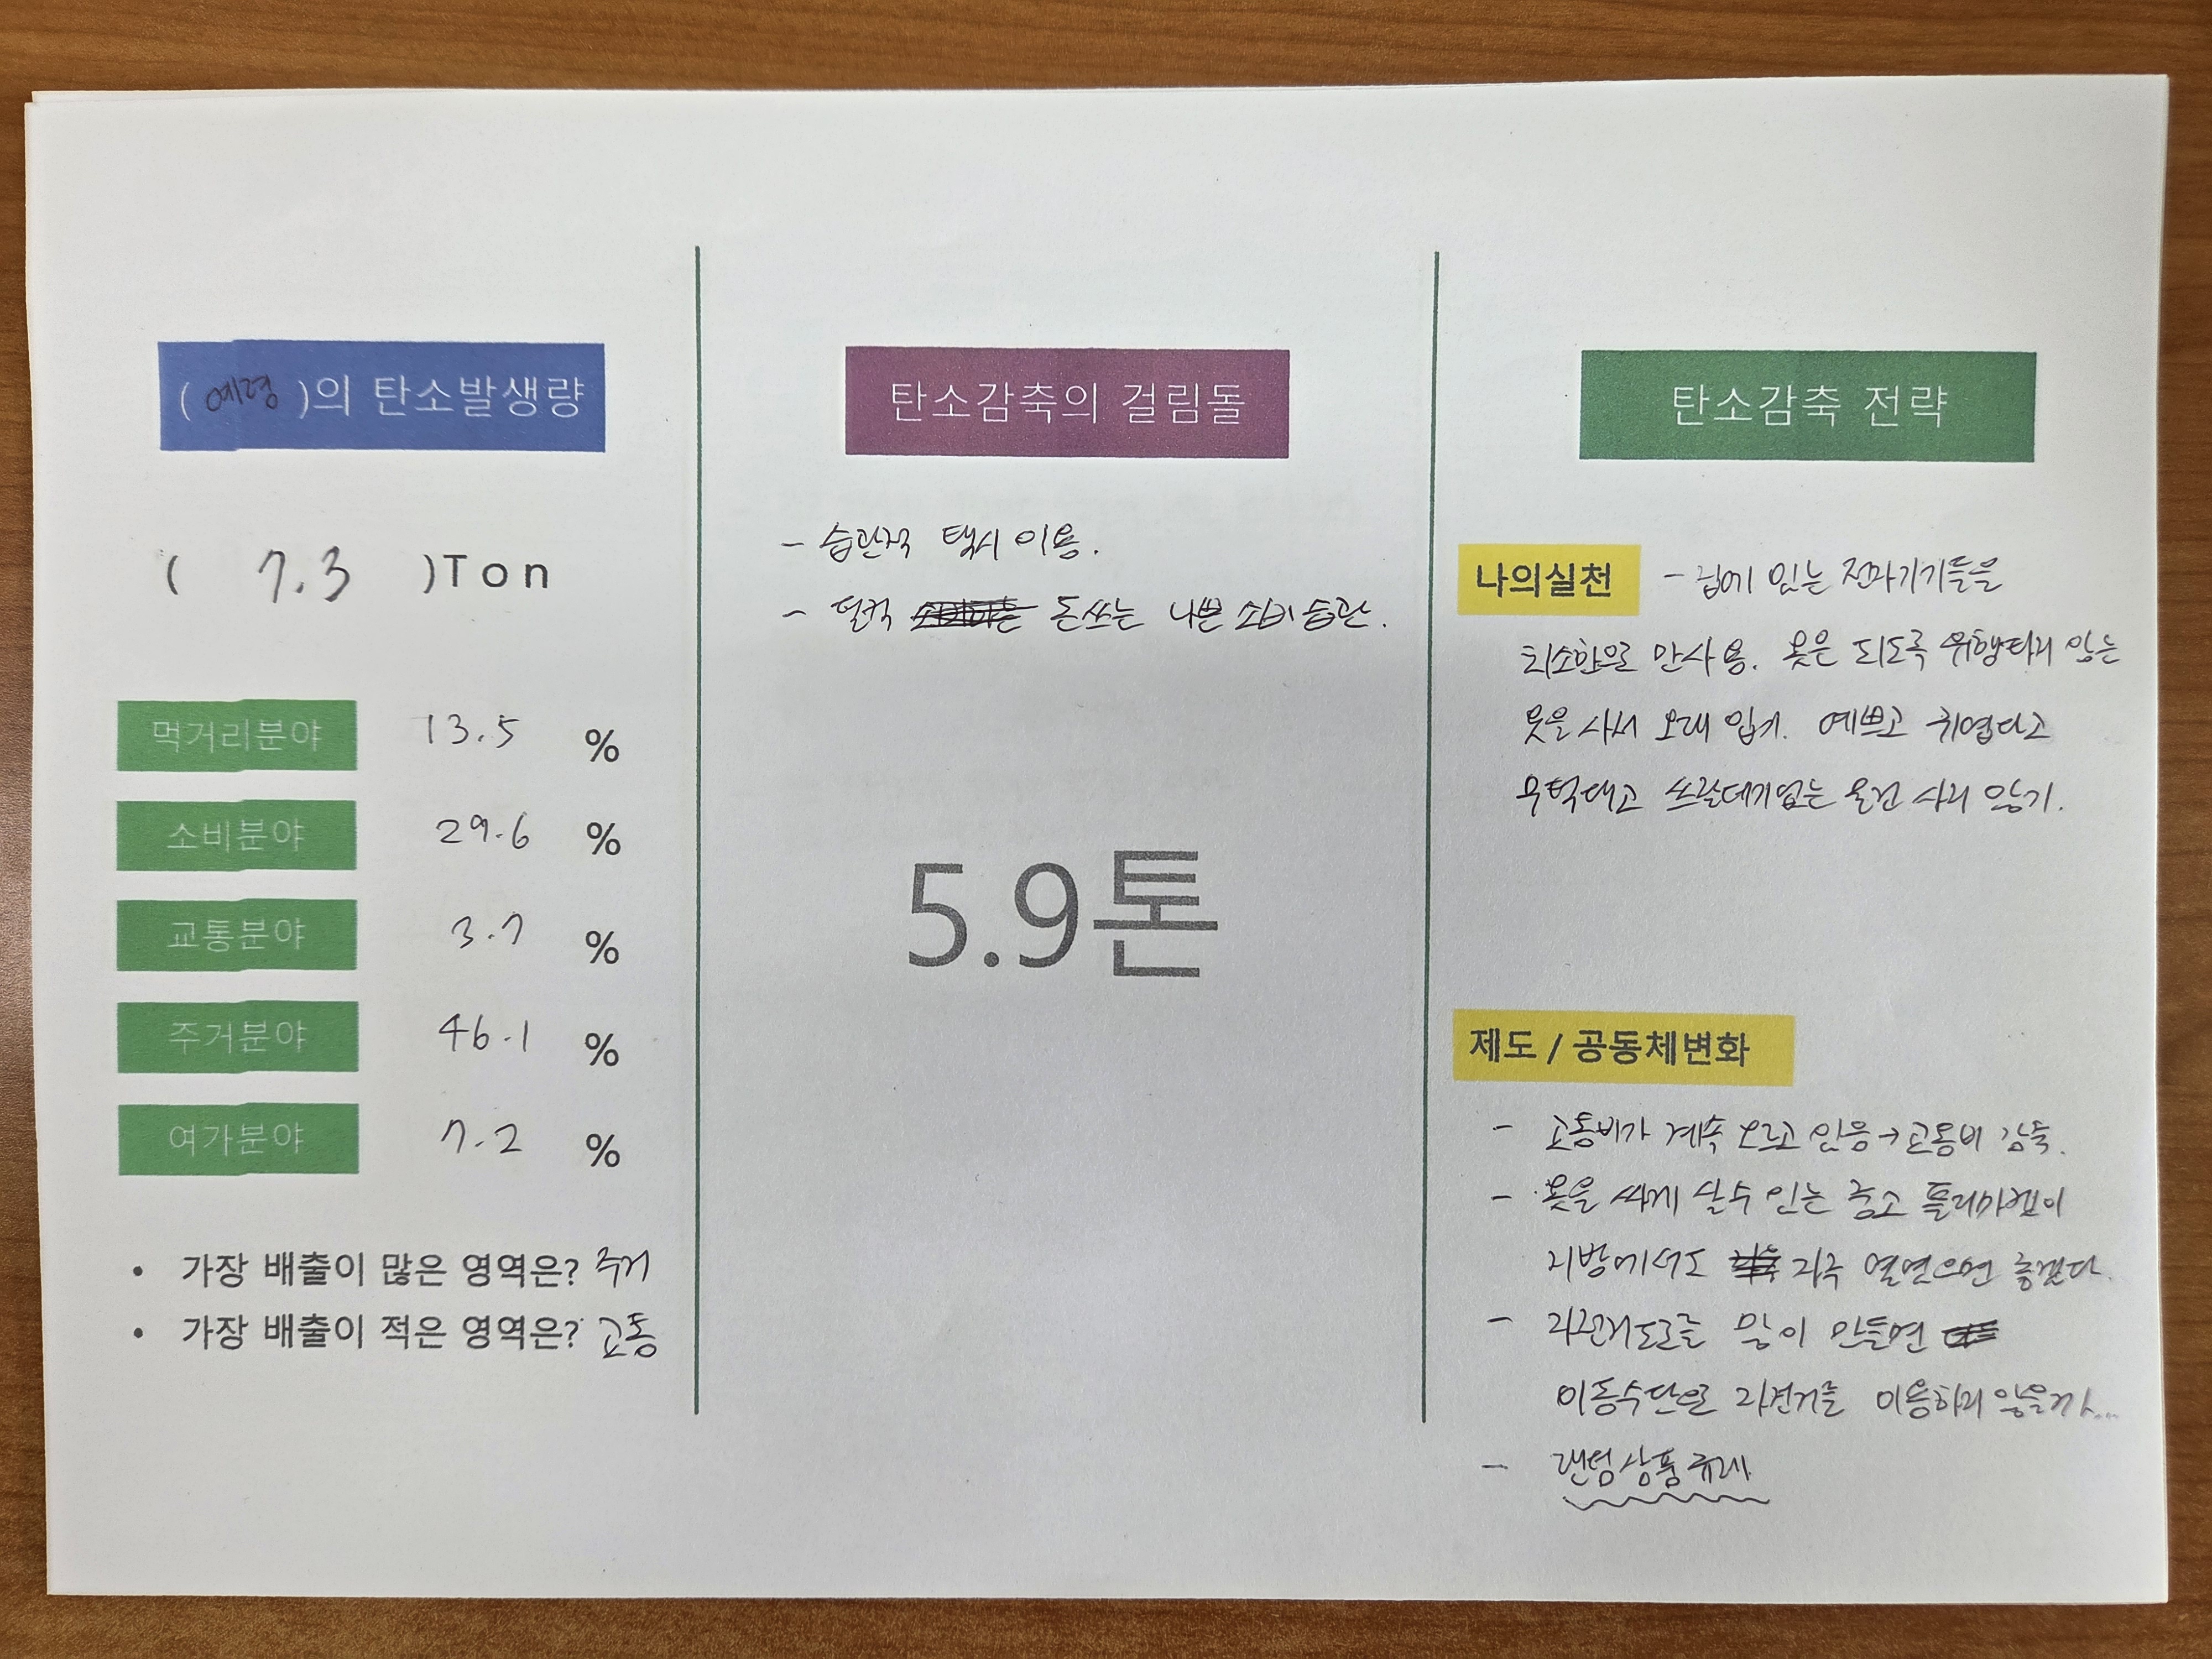 (예령)의 탄소발생량
( 7.3 )Ton
먹거리분야 13.5 %
소비분야 29.6 %
교통분야 3.7 %
주거분야 46.1 %
여가분야 7.2 %
• 가장 배출이 많은 영역은? 주거
• 가장 배출이 적은 영역은? 교통
탄소감축의 걸림돌
- 습관적 택시 이용.
- 덜컥 돈쓰는 나쁜 소비습관.
5.9톤
탄소감축 전략
나의실천 - 집에 있는 전자기기들을
최소한으로 만사용. 옷은 되도록 유행타지 않는
옷을 사서 오래 입기. 예쁘고 귀엽다고
무턱대고 쓰잘데기없는 물건 사지 않기.
제도 / 공동체변화
- 교통비가 계속 오르고 있음 → 교통비 감축.
- 옷을 싸게 살수 있는 중고 플리마켓이
지방에서도 자주 열렸으면 좋겠다.
- 자전거도로를 많이 만들면
이동수단으로 자전거를 이용하지 않을까...
- 랜덤상품규제